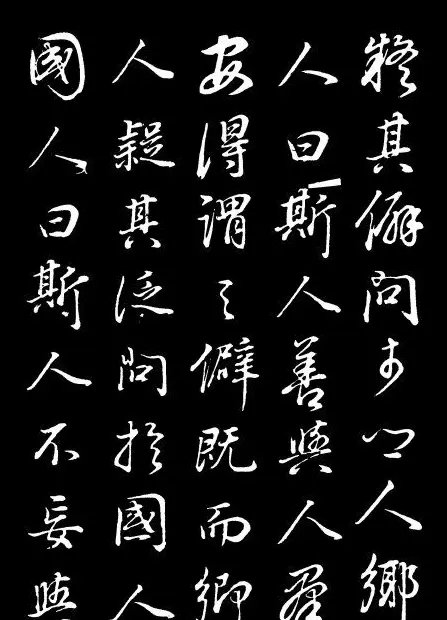 疑其僻問于鄉人鄉
人曰斯人善與人羣
安得謂之僻既而鄉
人疑其泛問於國人
國人曰斯人不妄與